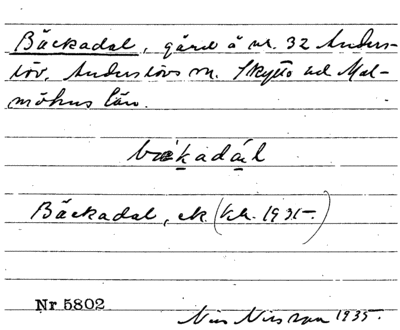 Bäckadal, gård å nr. 32 Anders-
löv, Anderslövs sn. Skytts hd Mal-
möhus län.
bækadál
Bäckadal, ek. (kh. 1931-)
Nr 5802
Nils Nilsson 1935.